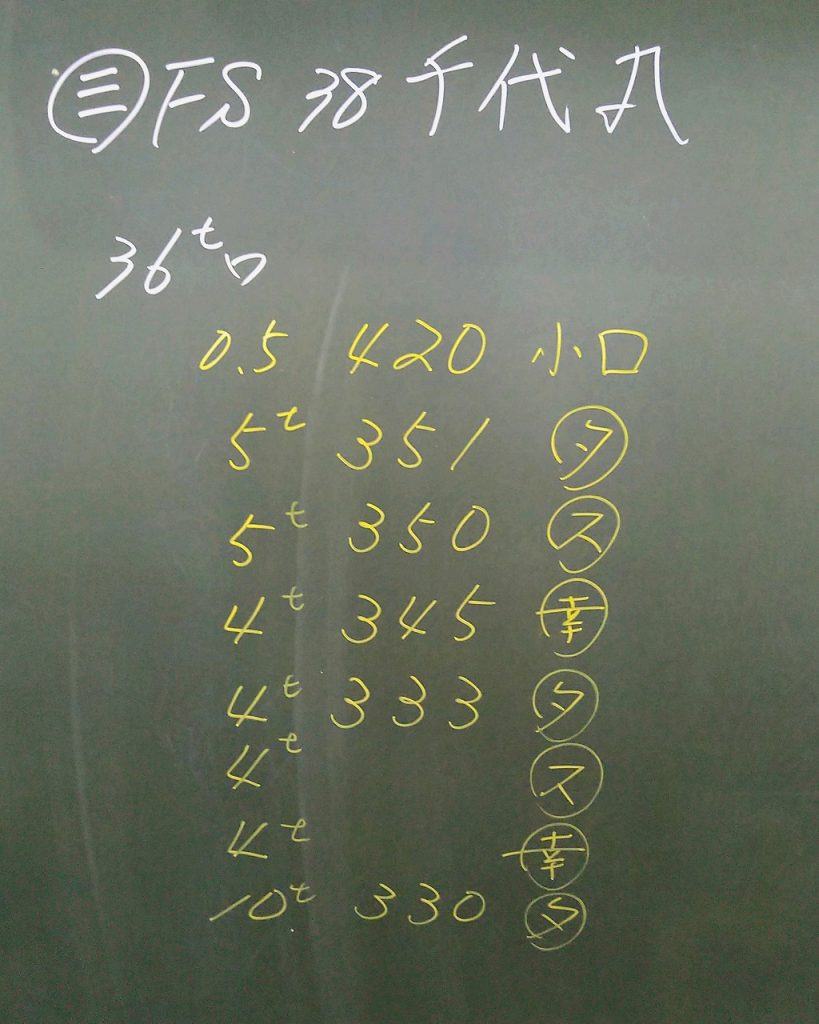 ㊂FS 38千代丸
36t口
0.5 420 小口
5t 351 タ
5t 350 ス
4t 345 幸
4t 333 タ
4t ス
4t 幸
10t 330 タ